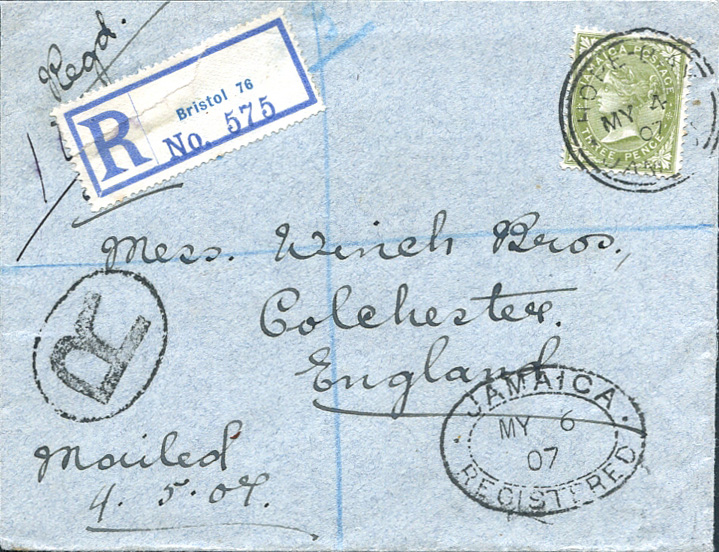 Regd.
R
Bristol 76
No. 575
JAMAICA POSTAGE
THREE PENCE
HOPE BAY
MY 4
07
JAMAICA
Mess. Winch Bros.,
Colchester.
England
R
JAMAICA.
MY 6
07
REGISTERED
Mailed
4. 5. 07.